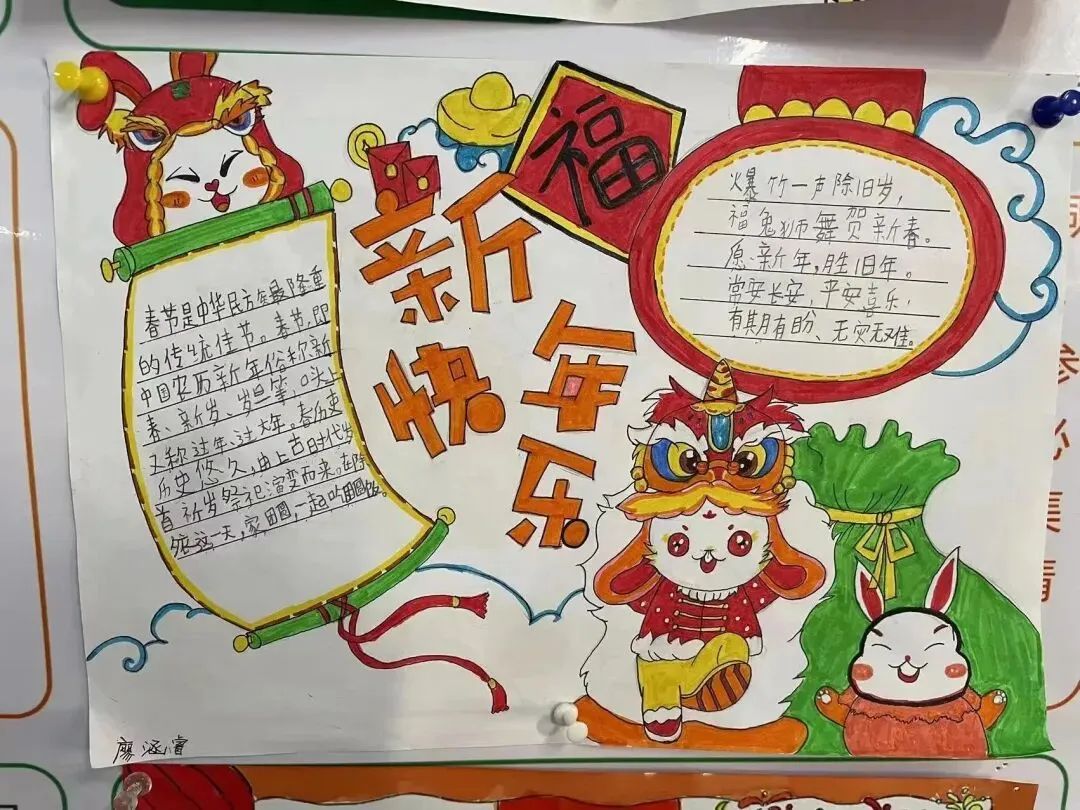 福
新年
快乐
爆竹一声除旧岁,
福兔狮舞贺新春。
愿新年,胜旧年。
常安长安,平安喜乐,
有期有盼、无灾无难。
春节是中华民族最隆重
的传统佳节。春节,即
中国农历新年俗称新
春、新岁、岁旦等,口头上
又称过年、过大年。春历史
历史悠久,由上古时代岁
首祈岁祭祀演变而来。在除
夕这一天,家团圆,一起吃团圆饭。
廖涵睿